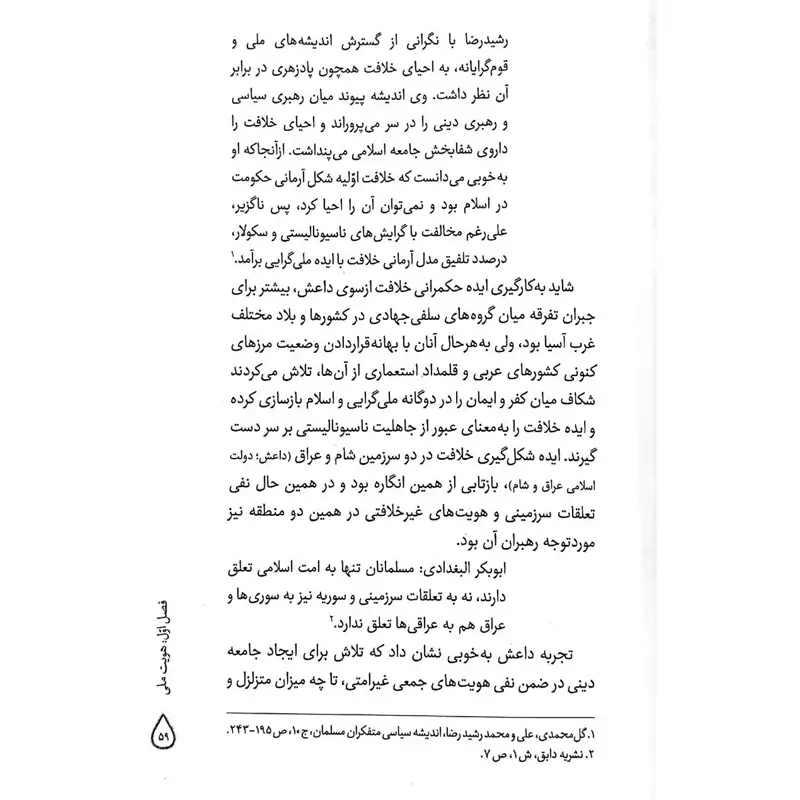 رشیدرضا با نگرانی از گسترش اندیشه‌های ملی و
قوم‌گرایانه، به احیای خلافت همچون پادزهری در برابر
آن نظر داشت. وی اندیشه پیوند میان رهبری سیاسی
و رهبری دینی را در سر می‌پروراند و احیای خلافت را
داروی شفابخش جامعه اسلامی می‌پنداشت. ازآنجاکه او
به‌خوبی می‌دانست که خلافت اوّلیه شکل آرمانی حکومت
در اسلام بود و نمی‌توان آن را احیا کرد، پس ناگزیر،
علی‌رغم مخالفت با گرایش‌های ناسیونالیستی و سکولار،
درصدد تلفیق مدل آرمانی خلافت با ایده ملی‌گرایی برآمد.۱
شاید به‌کارگیری ایده حکمرانی خلافت ازسوی داعش، بیشتر برای
جبران تفرقه میان گروه‌های سلفی‌جهادی در کشورها و بلاد مختلف
غرب آسیا بود، ولی به‌هرحال آنان با بهانه‌قراردادن وضعیت مرزهای
کنونی کشورهای عربی و قلمداد استعماری از آن‌ها، تلاش می‌کردند
شکاف میان کفر و ایمان را در دوگانه ملی‌گرایی و اسلام بازسازی کرده
و ایده خلافت را به‌معنای عبور از جاهلیت ناسیونالیستی بر سر دست
گیرند. ایده شکل‌گیری خلافت در دو سرزمین شام و عراق (داعش؛ دولت
اسلامی عراق و شام)، بازتابی از همین انگاره بود و در همین حال نفی
تعلقات سرزمینی و هویت‌های غیرخلافتی در همین دو منطقه نیز
موردتوجه رهبران آن بود.
ابوبکر البغدادی: مسلمانان تنها به امت اسلامی تعلق
دارند، نه به تعلقات سرزمینی و سوریه نیز به سوری‌ها و
عراق هم به عراقی‌ها تعلق ندارد.۲
تجربه داعش به‌خوبی نشان داد که تلاش برای ایجاد جامعه
دینی در ضمن نفی هویت‌های جمعی غیرامتی، تا چه میزان متزلزل و
۱. گل‌محمدی، علی و محمد رشید رضا، اندیشه سیاسی متفکران مسلمان، ج۱۰، ص۱۹۵-۲۴۳.
۲. نشریه دابق، ش۱، ص۷.
فصل اوّل: هویت ملی
۵۹